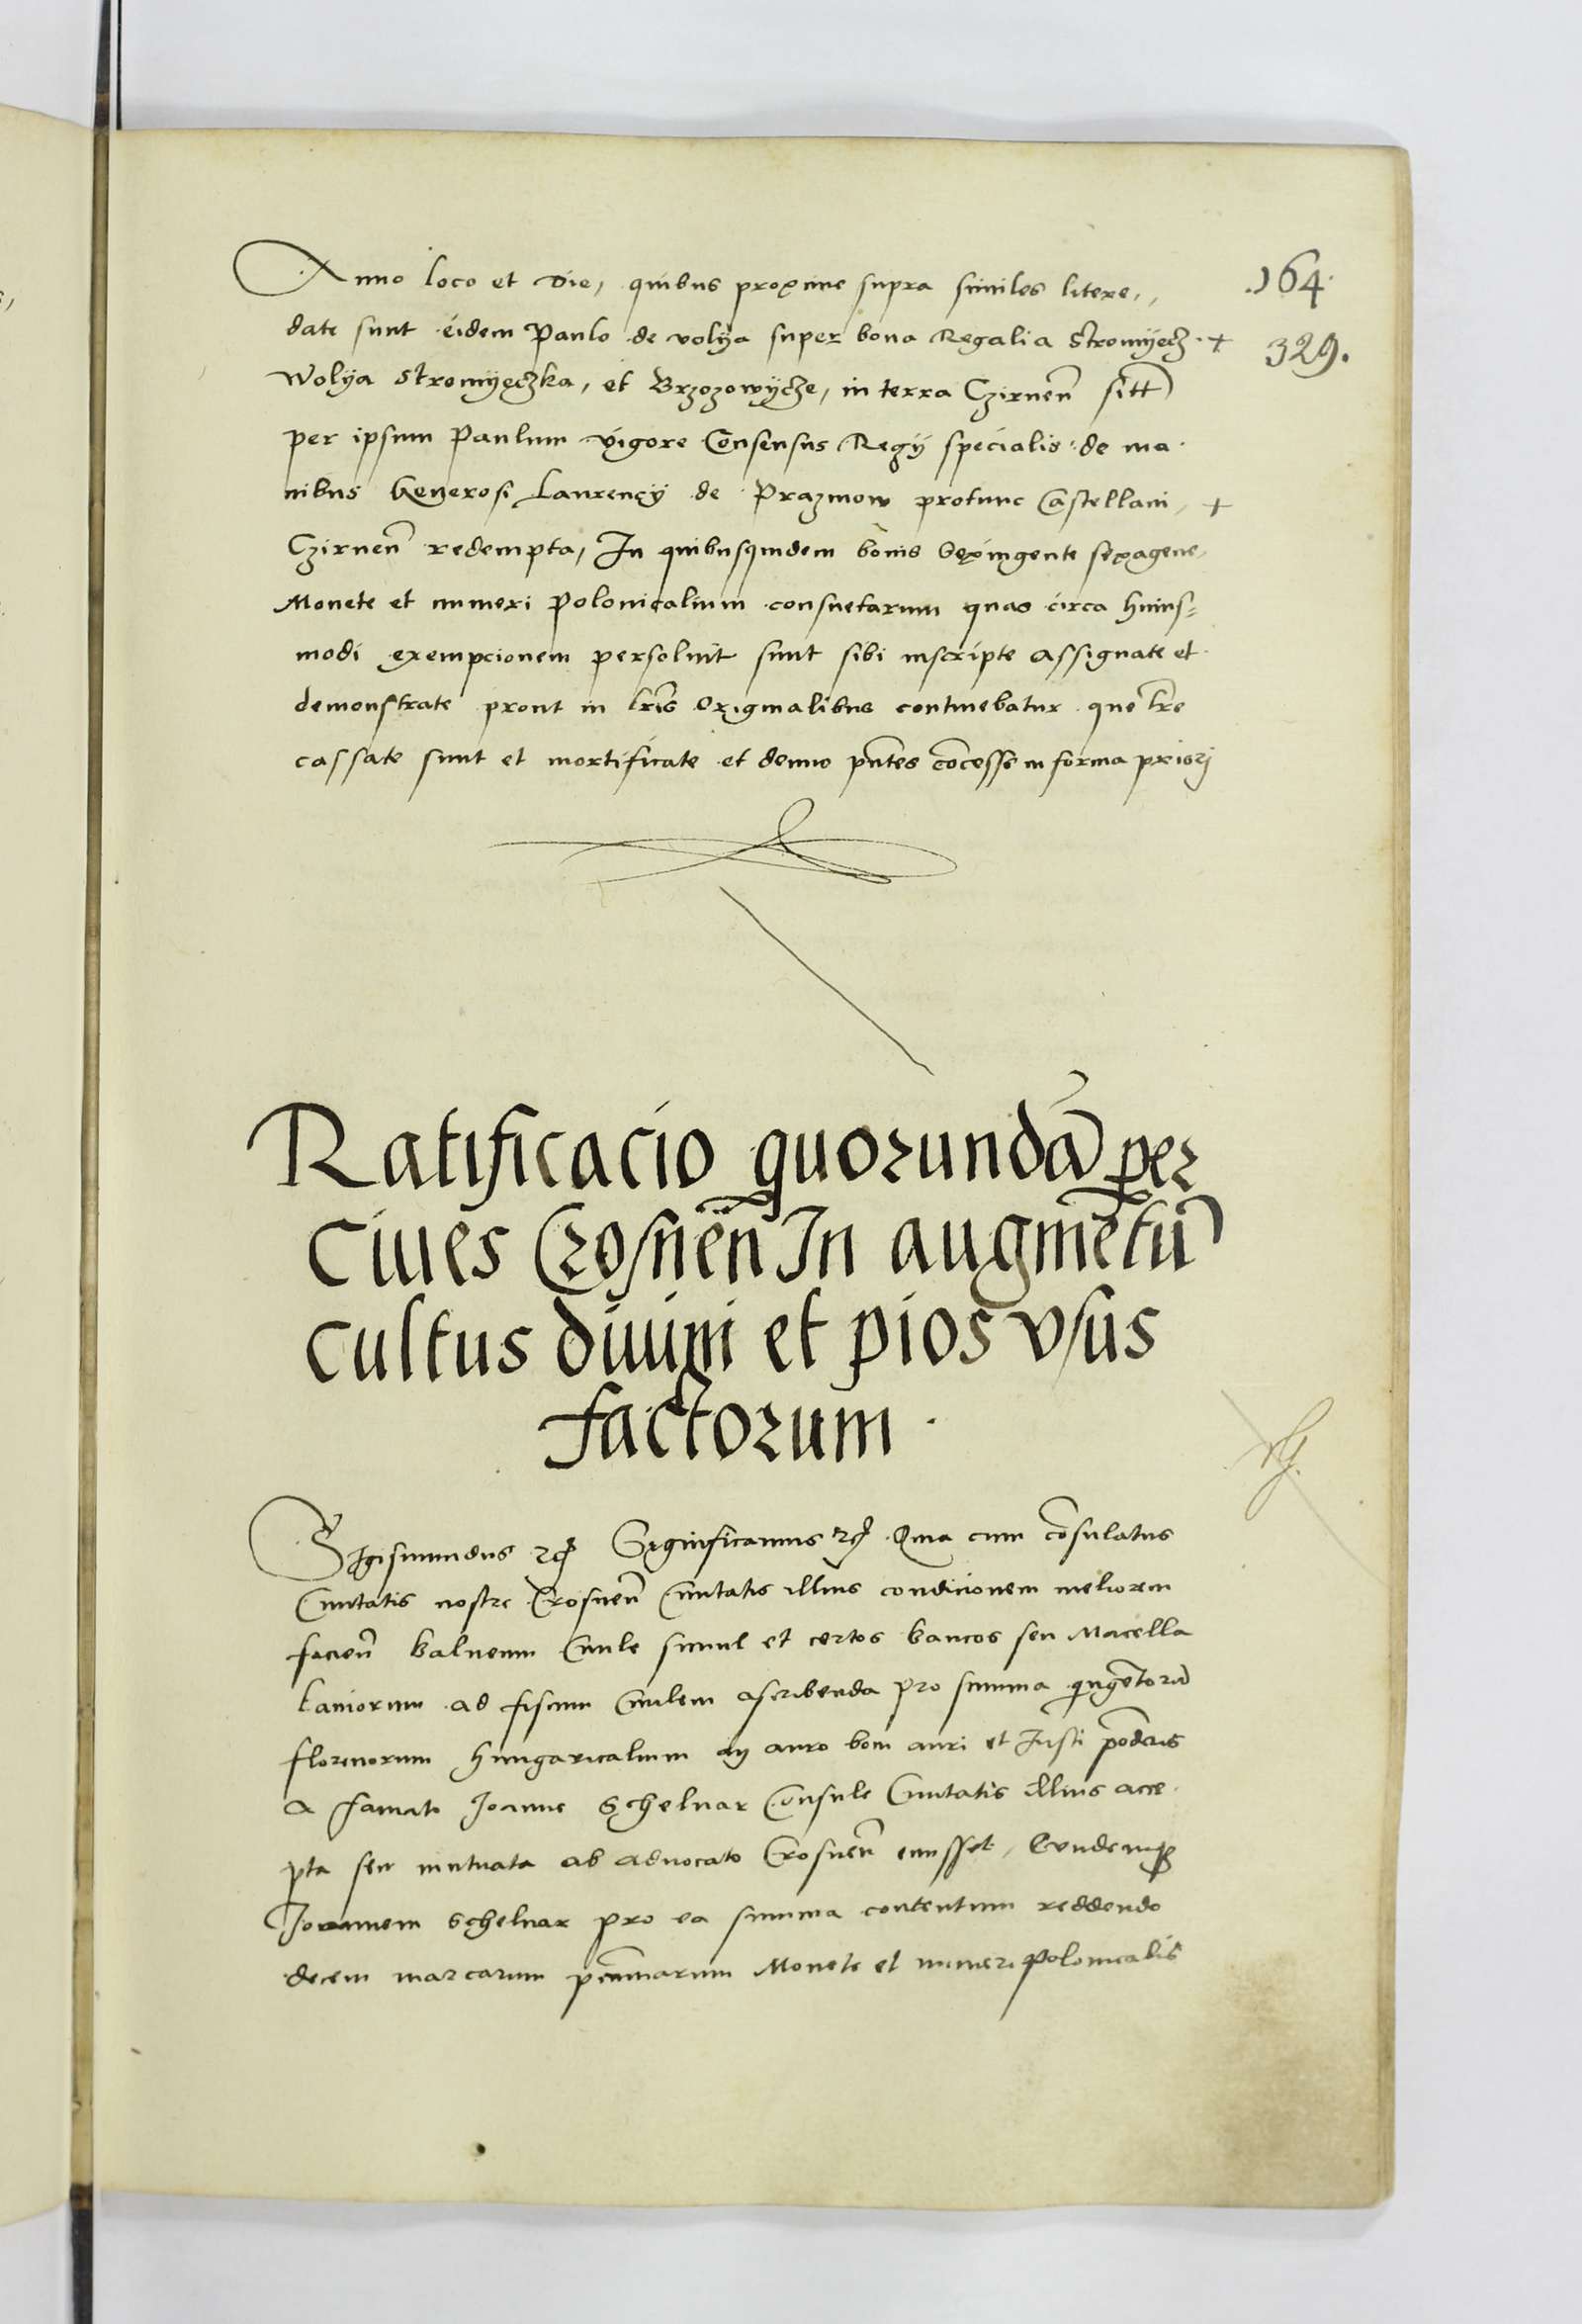 Anno loco et die, quibus proxime supra similes litere,,
.164.
date sunt eidem Paulo de volya super bona Regalia Stromyecz +
329.
Wolya Stromyeczka, et Brzozowycze, in terra Czirnen̄ sitt
per ipsum Paulum vigore Consensus Regij specialis de ma
nibus Generosi Laurencij de Prazmow protunc Castellani, +
Czirnen̄ redempta, In quibusquidem bonis Sexingente sexagene
Monete et numeri Polonicalium consuetarum quas circa huius=
modi exempcionem persoluit sunt sibi inscripte assignate et
demonstrate prout in lrīs Originalibus continebatur que lrē
cassate sunt et mortificate et denuo pn̄tes cōcesse in forma priori
Ratificacio quorundā per
ciues Crosnen̄ In augmētū
cultus diuini et pios vsus
factorum.
Sigismundus etc Significamus etc Quia cum cōsulatus
Ciuitatis nostre Crosnen̄ Ciuitatis illius condicionem meliorem
facien̄ balneum Ciuile simul et certos bancos seu Macella
Laniorum ad fiscum Ciuilem ascribenda pro summa quingētorū
florenorum hungaricalium in auro boni auri et Justi pōderis
a famato Joanne Schelnar Consule Ciuitatis illius acce
pta seu mutuata ab aduocato Crosnen̄ emisset, Eundemq
Joannem Schelnar pro ea summa contentum reddendo
decem marcarum pecūiarum Monete et numeri Polonicalis